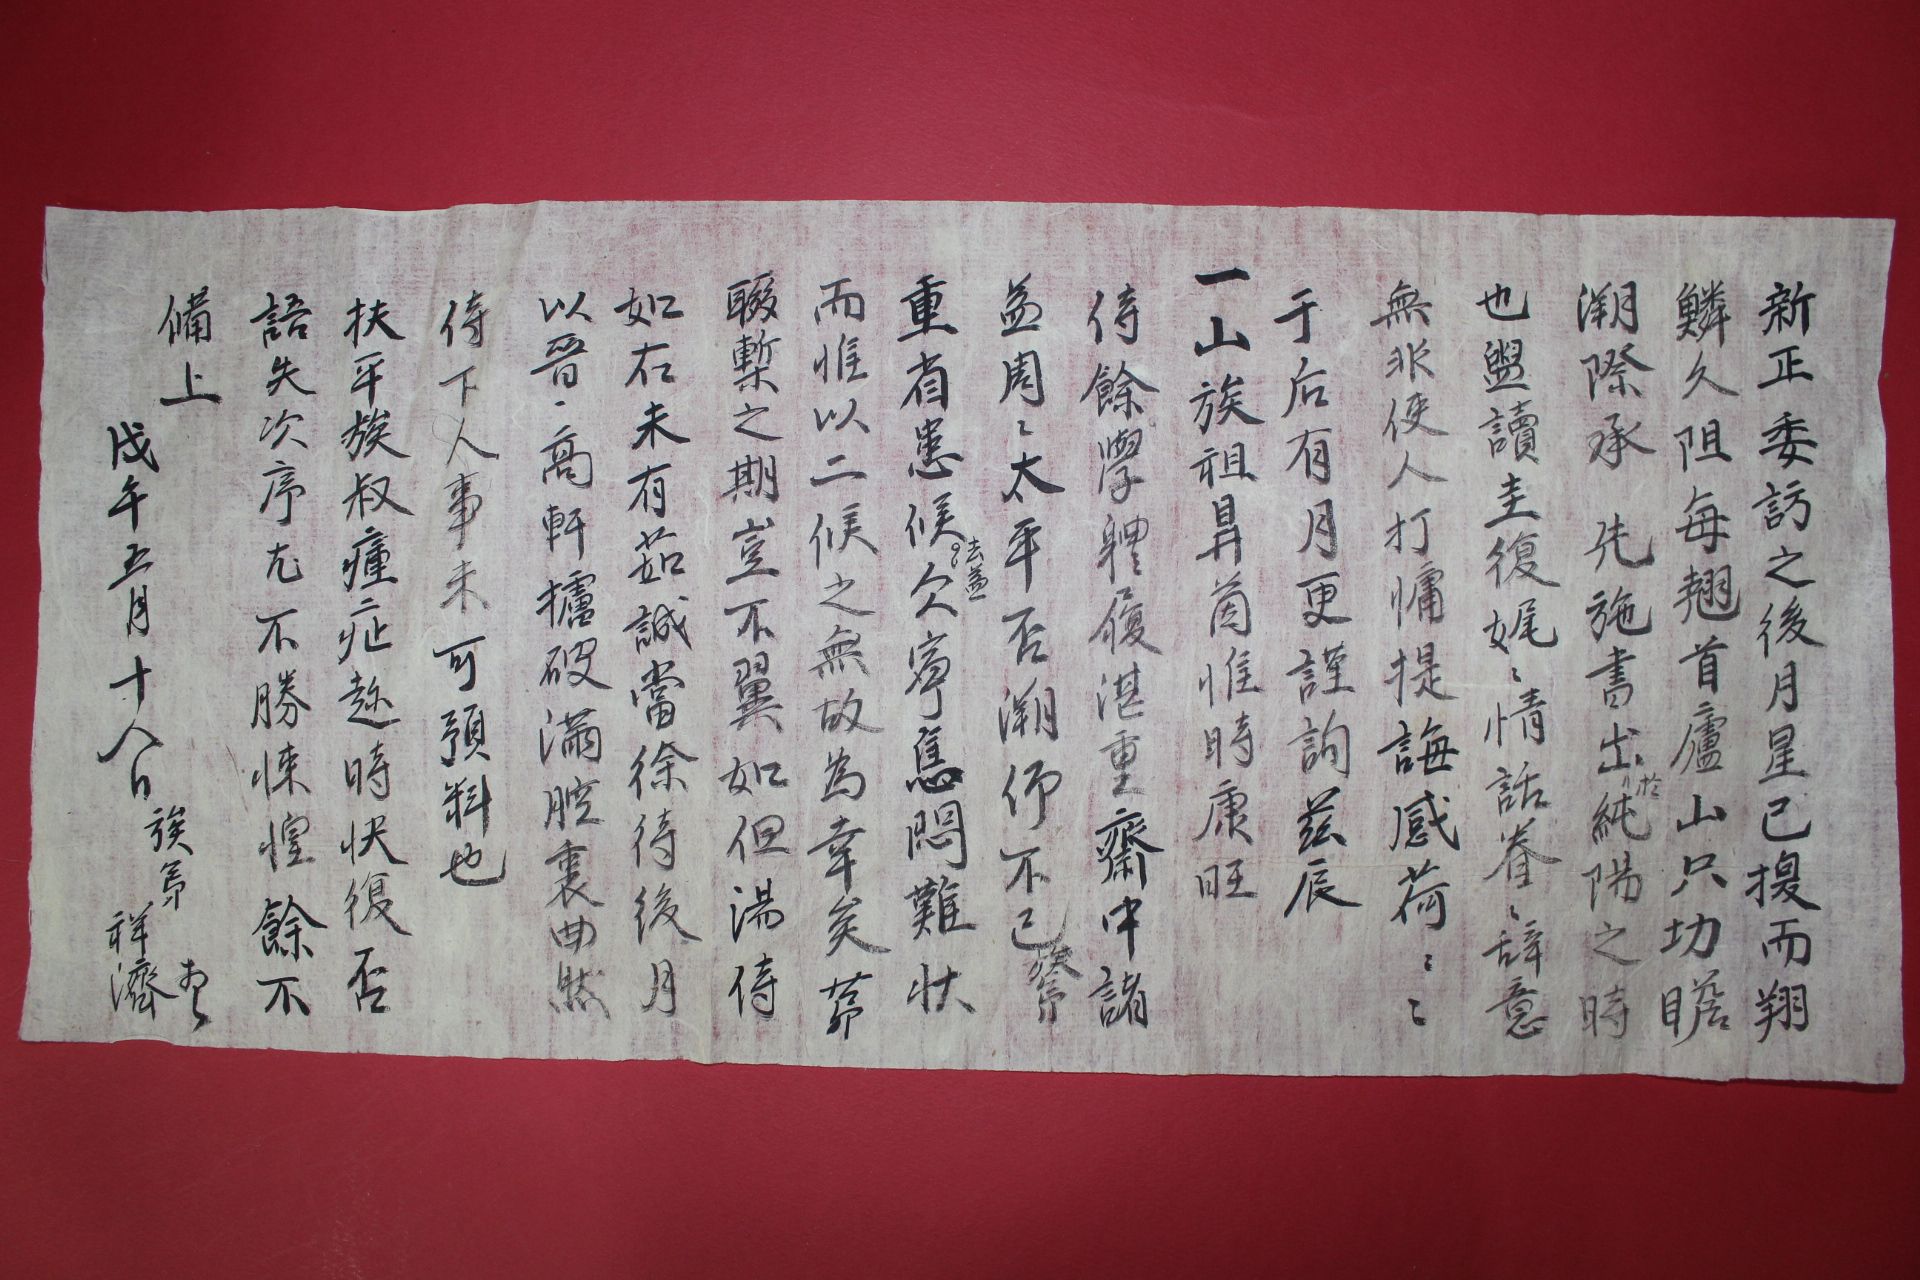 新正委訪之後月星已搜而翔
鱗久阻每翹首廬山只切瞻
溯際承先施書出於純陽之時
也盥讀圭復娓〻情話眷〻辞意
無非使人打慵提誨感荷〻〻
于后有月更謹詢玆辰
一山族祖鼻茵惟時康旺
侍餘學軆履湛重齋中諸
益周〻太平否溯仰不已族弟
重省患候去益欠寧焦悶難狀
而惟以二候之無故為幸矣第
啜槧之期豈不翼如但湯侍
如右未有茹誠當徐待後月
以晉高軒攄破滿腔裏曲然
侍下人事未可預料也
扶平族叔瘇症趁時快復否
語失次序尤不勝悚惶餘不
備上
戊午五月十八日
族弟
祥濟